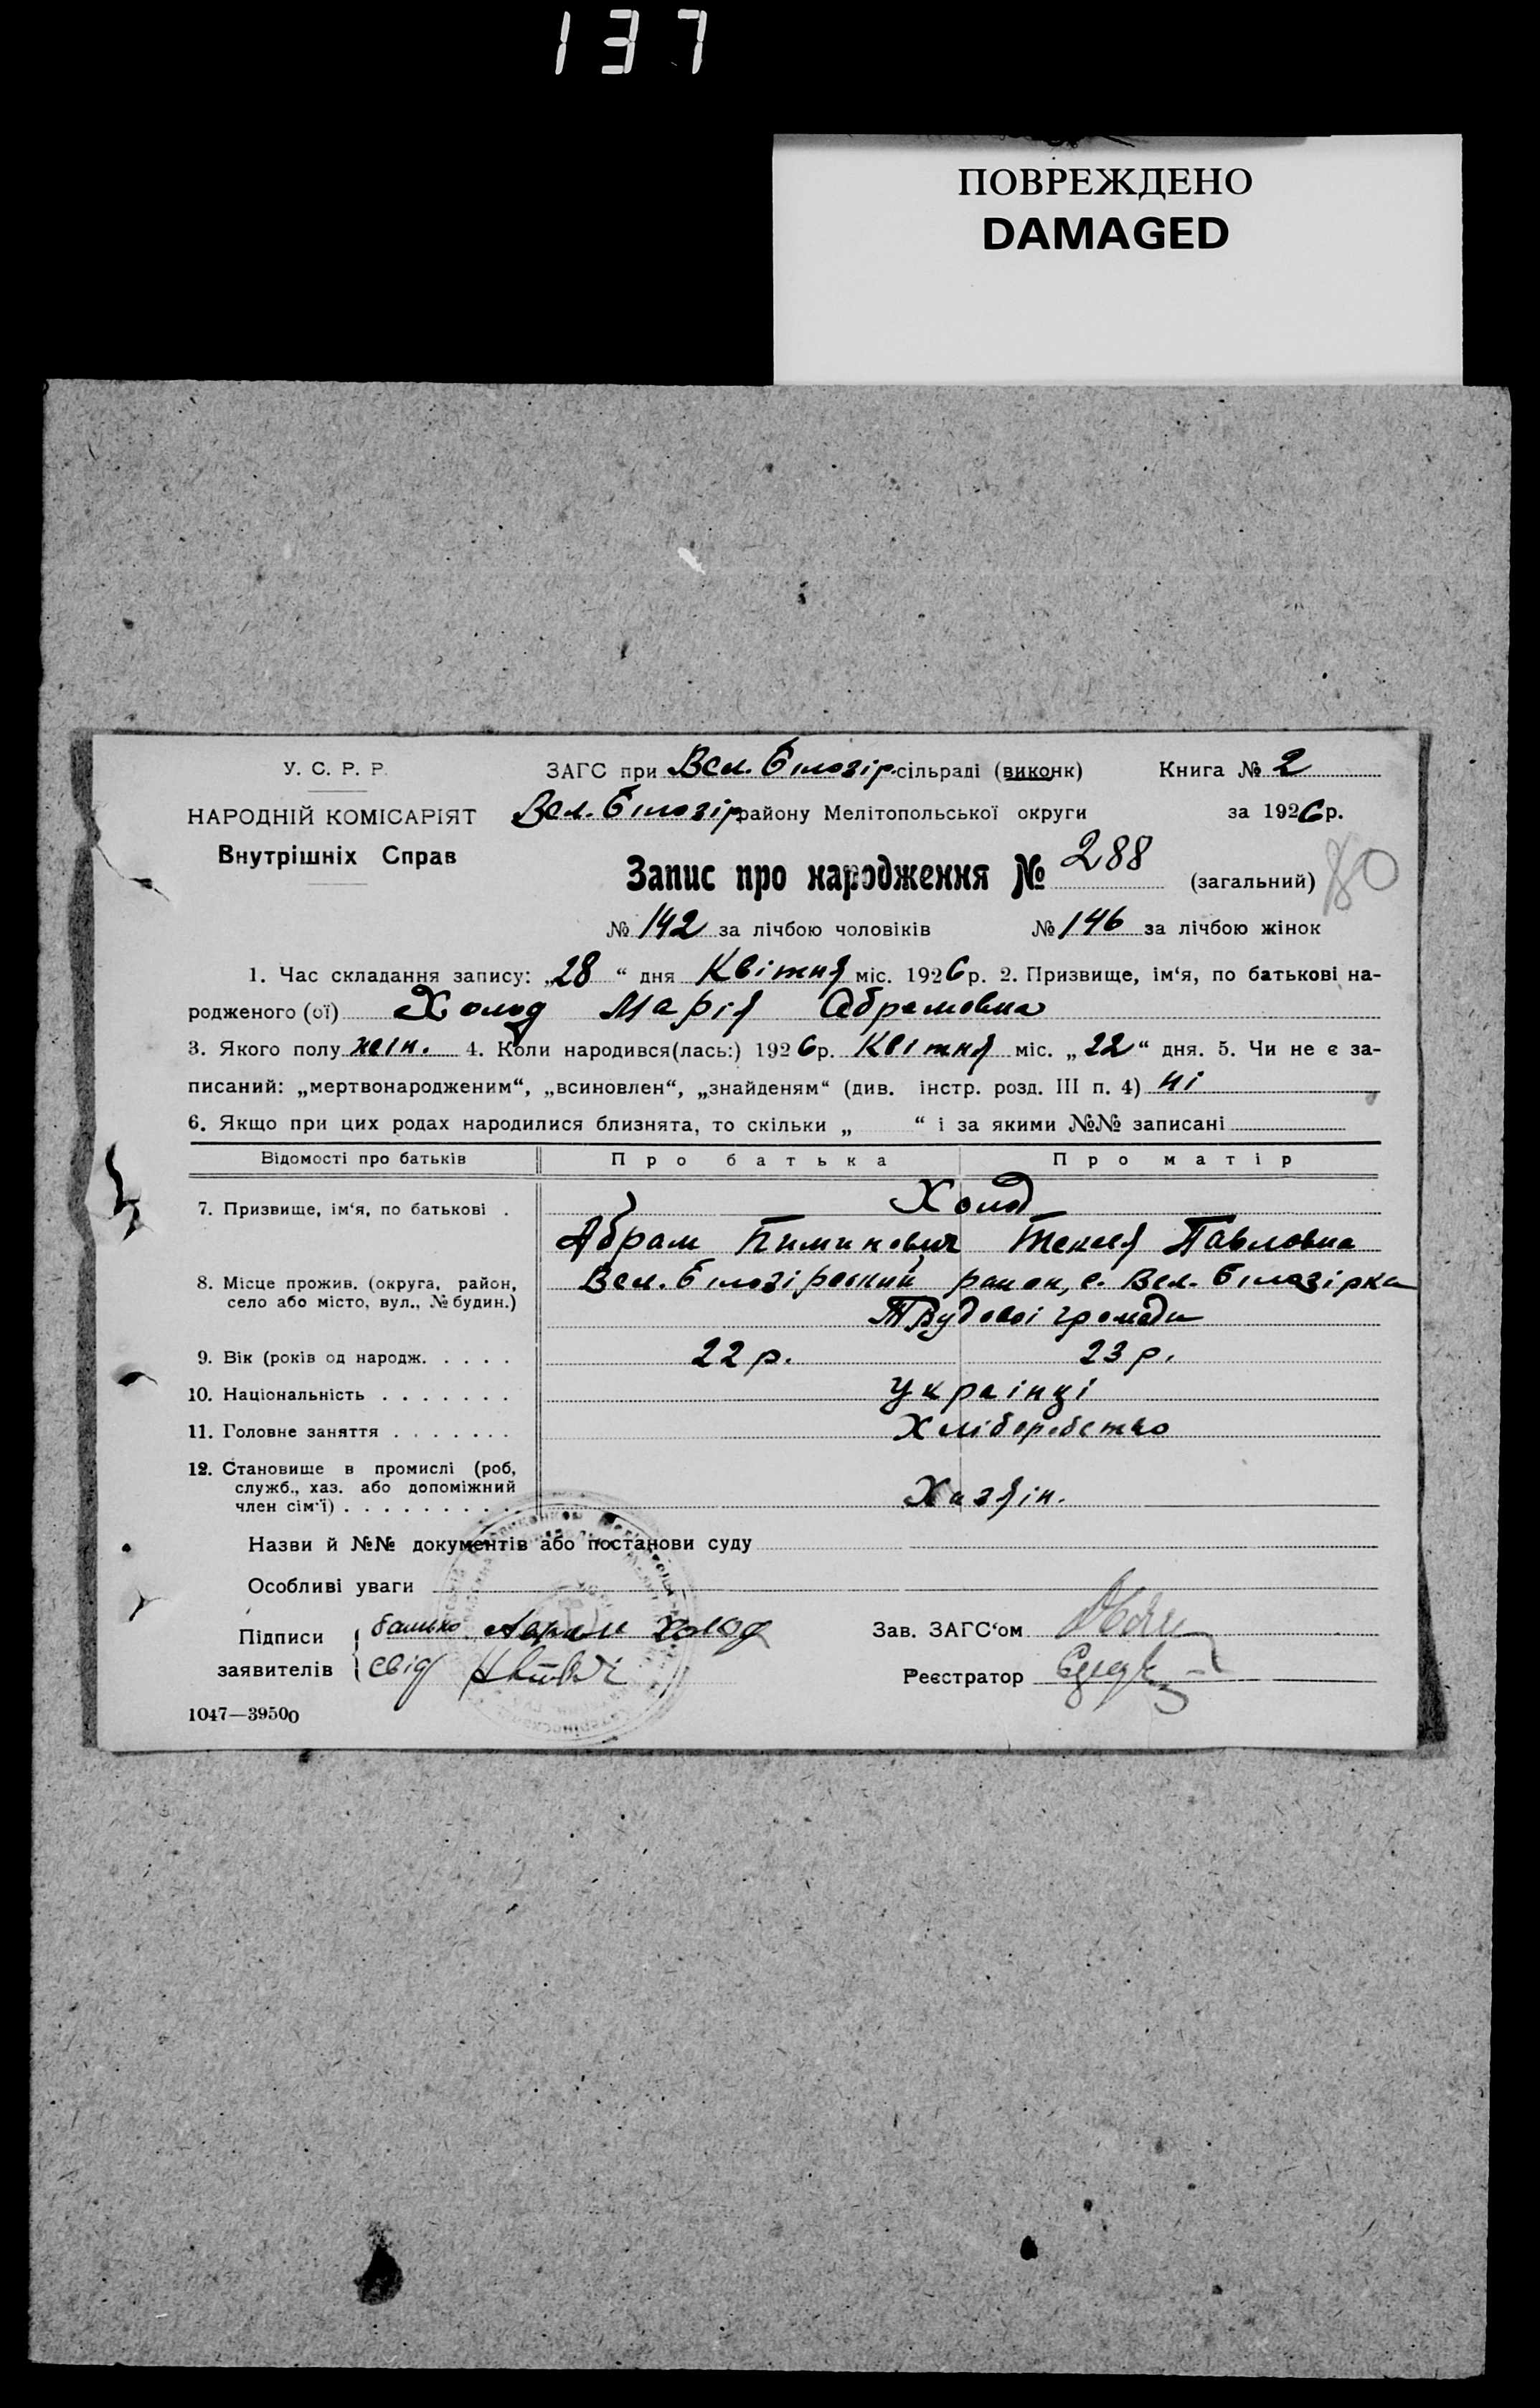 137
ПОВРЕЖДЕНО
DAMAGED
У. С. Р. Р.
НАРОДНІЙ КОМІСАРІЯТ
Внутрішніх Справ
ЗАГС при Вел. Білозір. сільраді (виконк)
Книга № 2
Вел. Білозір району Мелітопольської округи
за 1926 р.
Запис про народження № 288 (загальний) 80
№ 142 за лічбою чоловіків № 146 за лічбою жінок
1. Час складання запису: „28“ дня Квітня міс. 1926 р. 2. Призвище, ім‘я, по батькові на-
родженого (ої) Холод Марія Абрамовна
3. Якого полу жін. 4. Коли народився(лась:) 1926 р. Квітня міс. „22“ дня. 5. Чи не є за-
писаний: „мертвонародженим“, „всиновлен“, „знайденям“ (див. інстр. розд. III п. 4) ні
6. Якщо при цих родах народилися близнята, то скільки „ “ і за якими №№ записані
Відомості про батьків Про батька Про матір
7. Призвище, ім‘я, по батькові . Холод
Абрам Пимиківич Текля Павловна
8. Місце прожив. (округа, район,
село або місто, вул., № будин.)
Вел. Білозірський район, с. Вел. Білозірка
Трудової громади
9. Вік (років од народж. . . . . 22 р. 23 р.
10. Національність . . . . . . . Українці
11. Головне заняття . . . . . . . Хліборобство
12. Становище в промислі (роб,
служб., хаз. або допоміжний
член сім‘ї) . . . . . . . . . . Хазяін.
Назви й №№ документів або постанови суду
Особливі уваги
Підписи
заявителів
батько Абрам Холод
свід
Зав. ЗАГС‘ом
Реєстратор
1047—39500